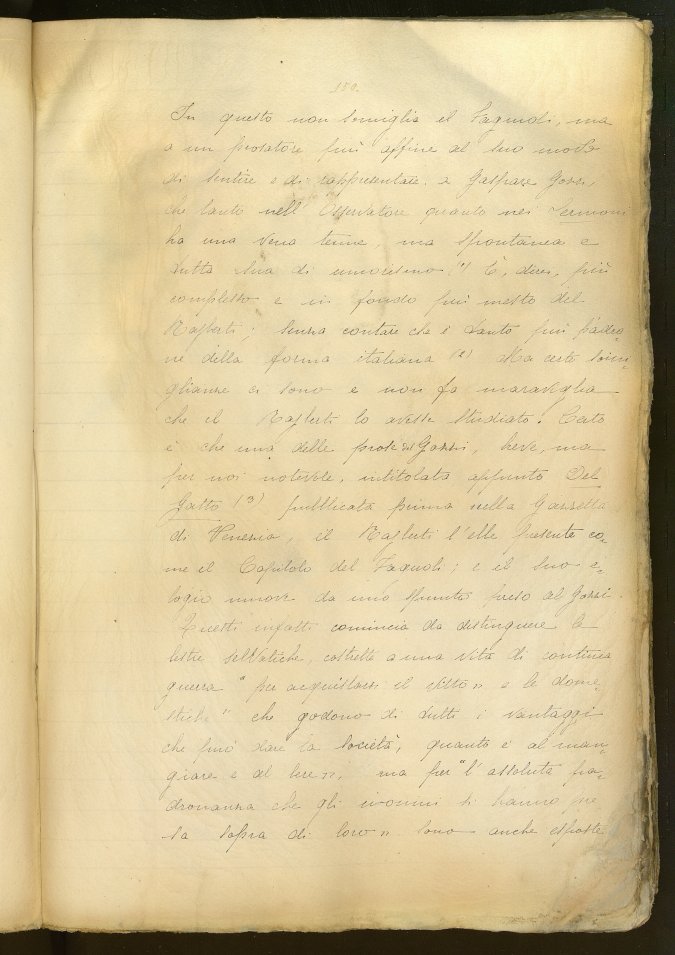 150.
In questo non somiglia il Fagiuoli, ma
a un prosatore più affine al suo modo
di sentire e di rappresentare, a Gaspare Gozzi,
che tanto nell'Osservatore quanto nei Sermoni
ha una vena tenue, ma spontanea e
tutta sua di umorismo (1) È, direi, più
complesso e in fondo più mesto del
Rajberti; senza contare che è tanto più padro-
ne della forma italiana (2) Ma certo somi-
glianze ci sono e non fa maraviglia
che il Rajberti lo avesse studiato. Certo
è che una delle prose del Gozzi, breve, ma
per noi notevole, intitolata appunto Del
Gatto (3) pubblicata prima nella Gazzetta
di Venezia, il Rajberti l'ebbe presente co-
me il Capitolo del Fagiuoli; e il suo e-
logio muove da uno spunto preso al Gozzi.
Questi infatti comincia da distinguere le
bestie selvatiche, costrette a una vita di continua
guerra "per acquistarsi il vitto" e le dome-
stiche" che godono di tutti i vantaggi
che può dare la società, quanto è al man-
giare e al bere", ma per "l'assoluta pa-
dronanza che gli uomini si hanno pre
sa sopra di loro" sono anche esposte